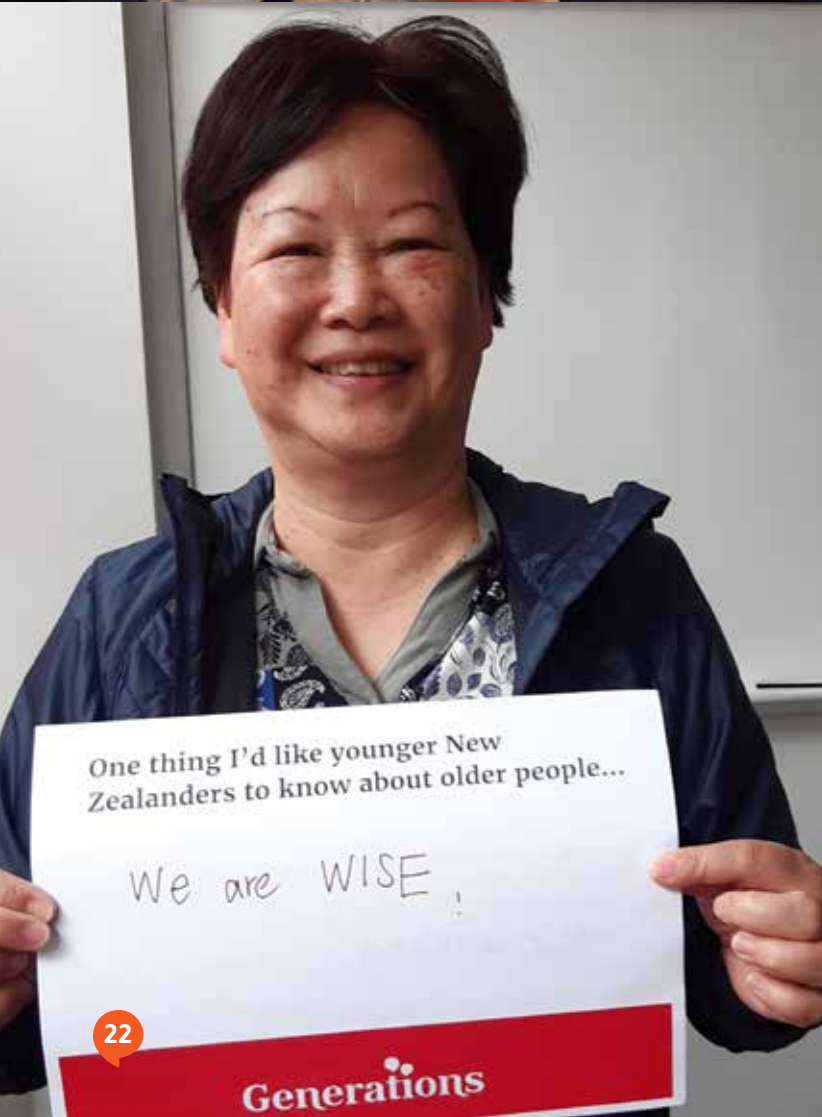 One thing I'd like younger New
Zealanders to know about older people...
We are WISE!
22
Generations